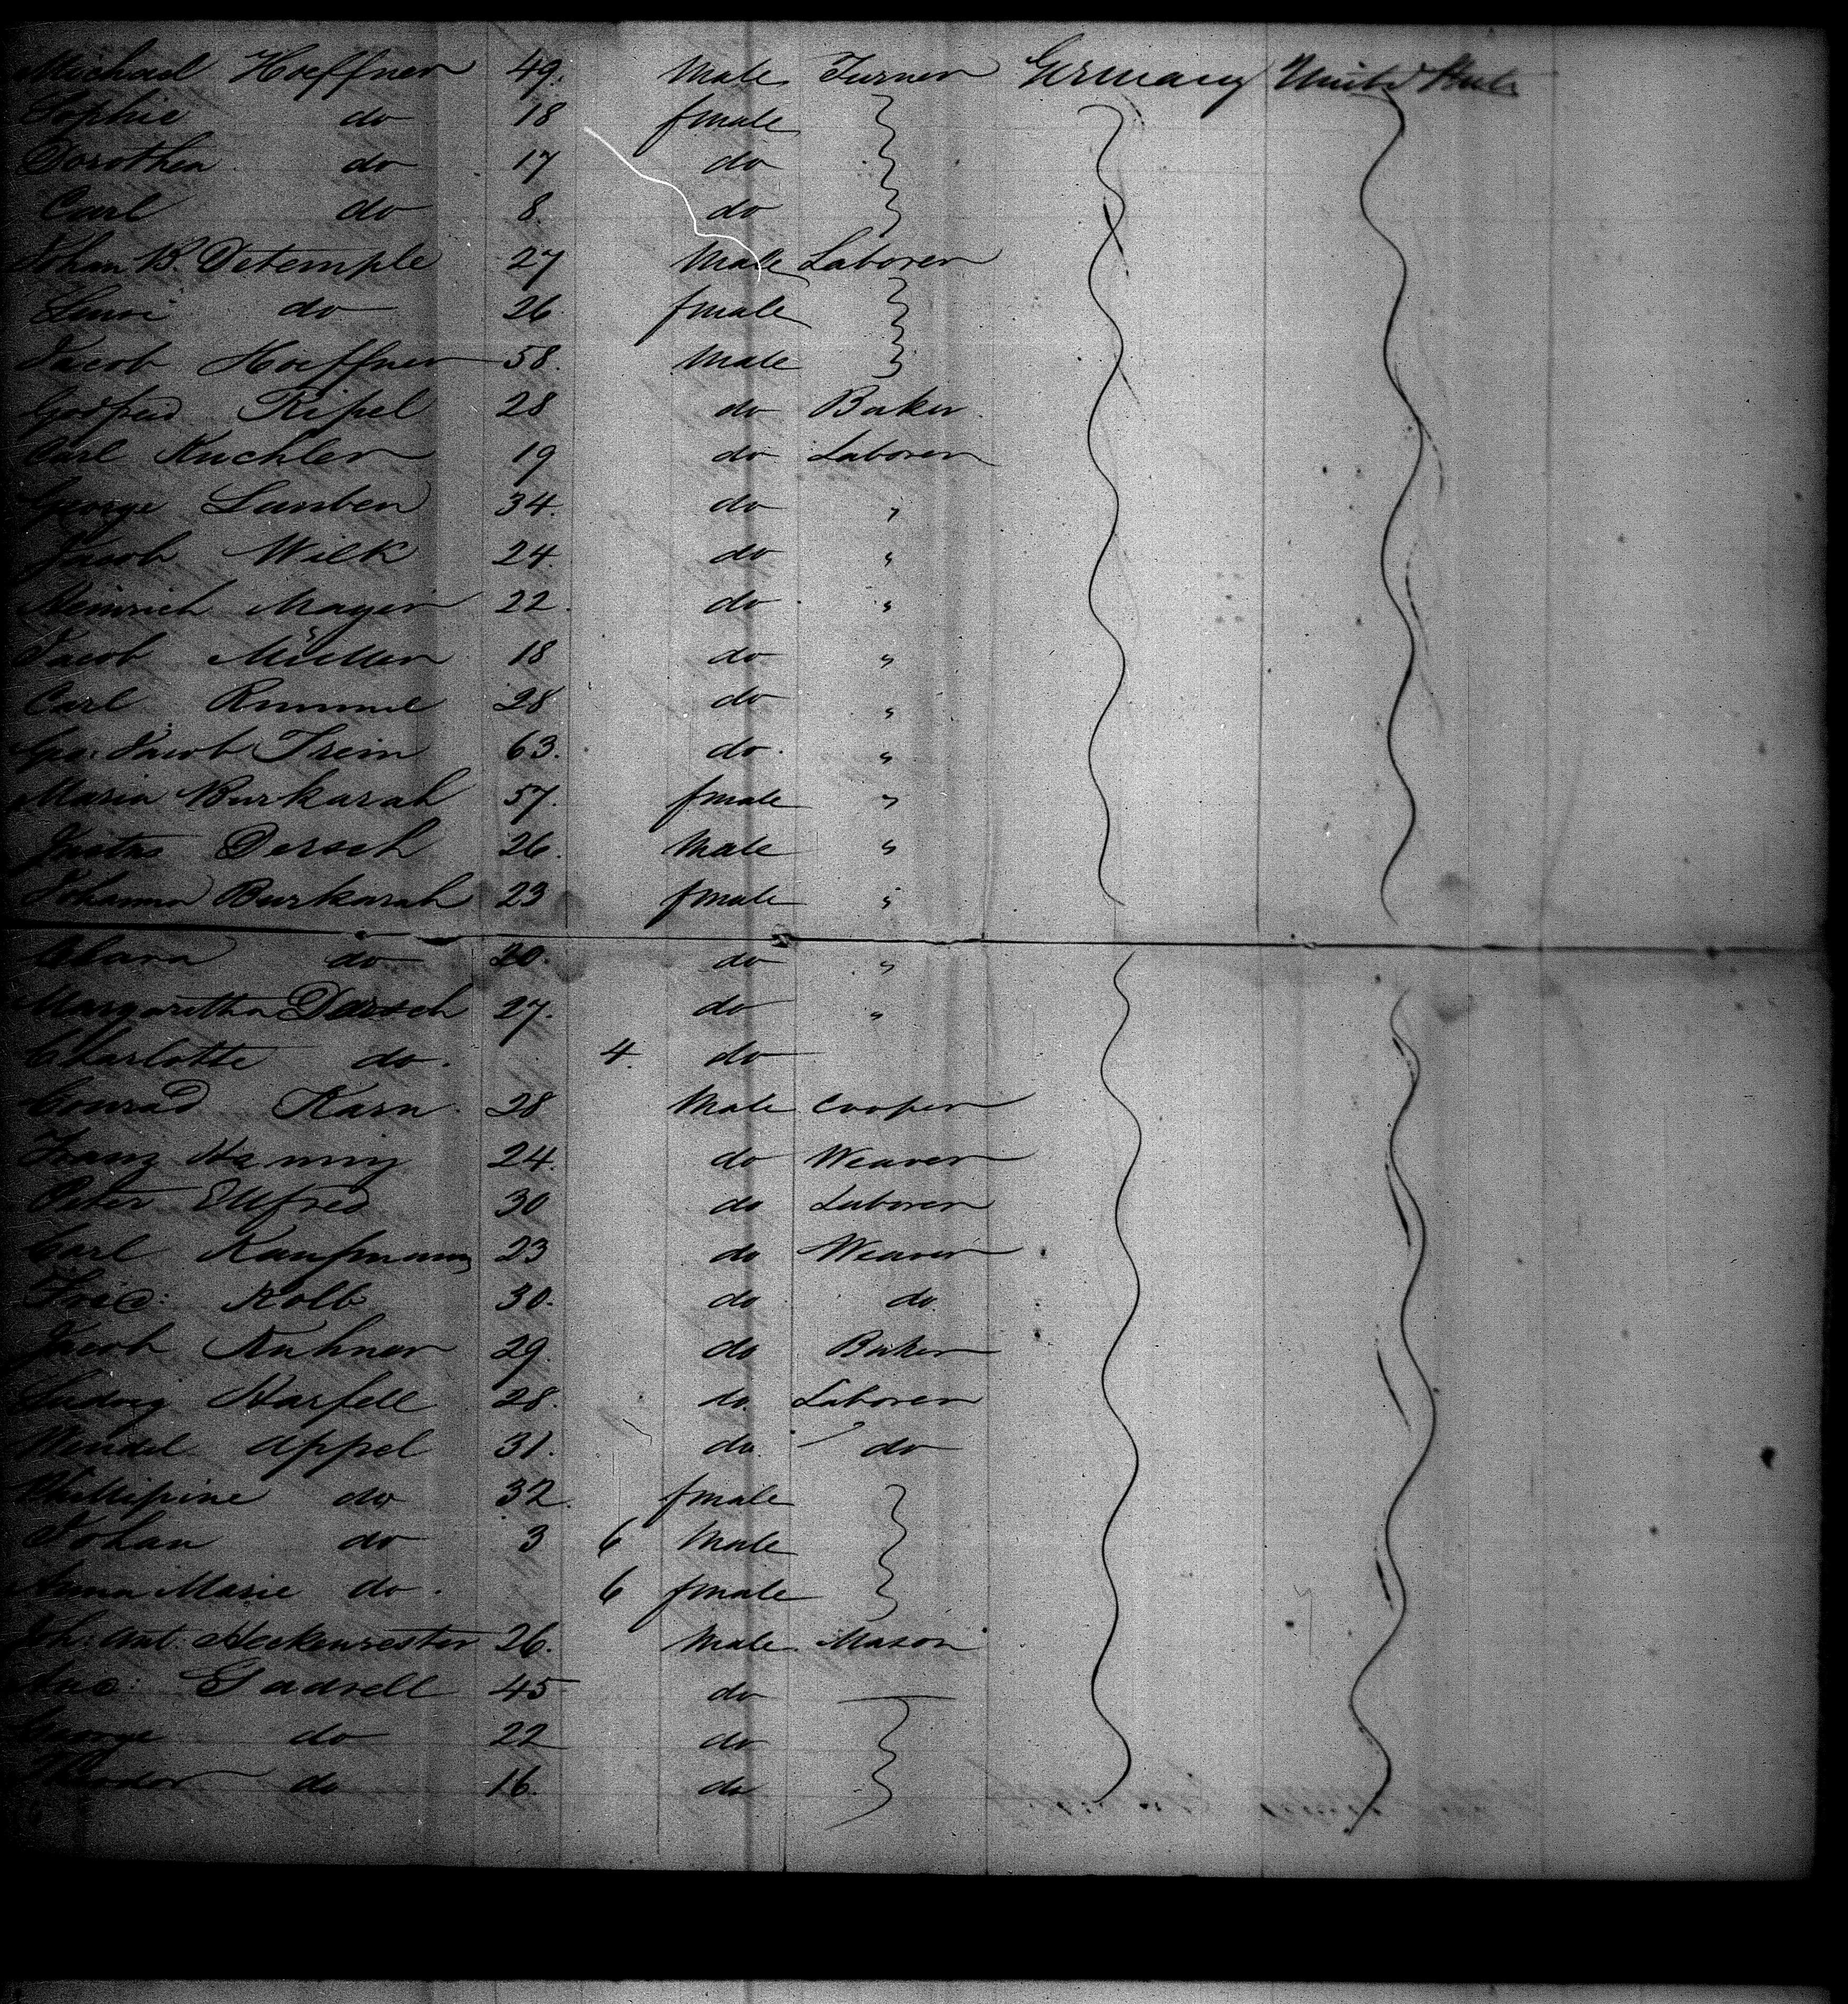 Michael Hoeffner 49. Male Turner Germany United States
Sophie do 18 female
Dorothea do 17 do
Carl do 8. do
Johan B. Detemple 27 Male Laborer
do 26. female
Jacob Hoeffner 58. Male
Godfried Ripel 28 do Baker
Carl Kuchler 19 do Laborer
George Lamben 34. do "
Jacob Wilk 24. do "
Heinrich Mayer 22. do "
Jacob Müller 18 do "
Carl Rummel 28 do "
Geo: Jacob Trein 63. do. "
Maria Burkarah 57. female "
Justus Dersch 26. Male "
Johanna Burkarah 23 female "
Chara do 20. do "
Margaretha Dersch 27. do "
Charlotte do. 4. do
Conrad Karn. 28 Male Cooper
Franz 24. do Weaver
Peter Ellfred 30 do Laborer
Carl Kaufmann 23 do Weaver
Fried: Kolb 30. do do
Jacob Kuhner 29. do Baker
Ludwig Harfell 28. do. Laborer
Wendel Appel 31. do. do
Phillipine do 32. female
Johan do 3 6 Male
Anna Marie do. 6 female
Joh: Ant. 26. Male Mason
Gadsell 45 do
George do 22 do
Theodor do 16. do